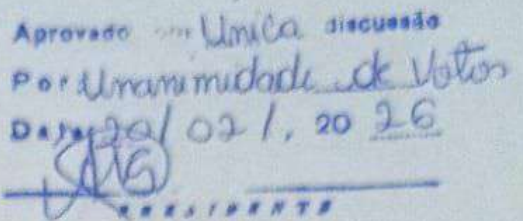 Aprovado em Única discussão
Por Unanimidade de Votos
Data 20/ 02 /, 20 26
PRESIDENTE